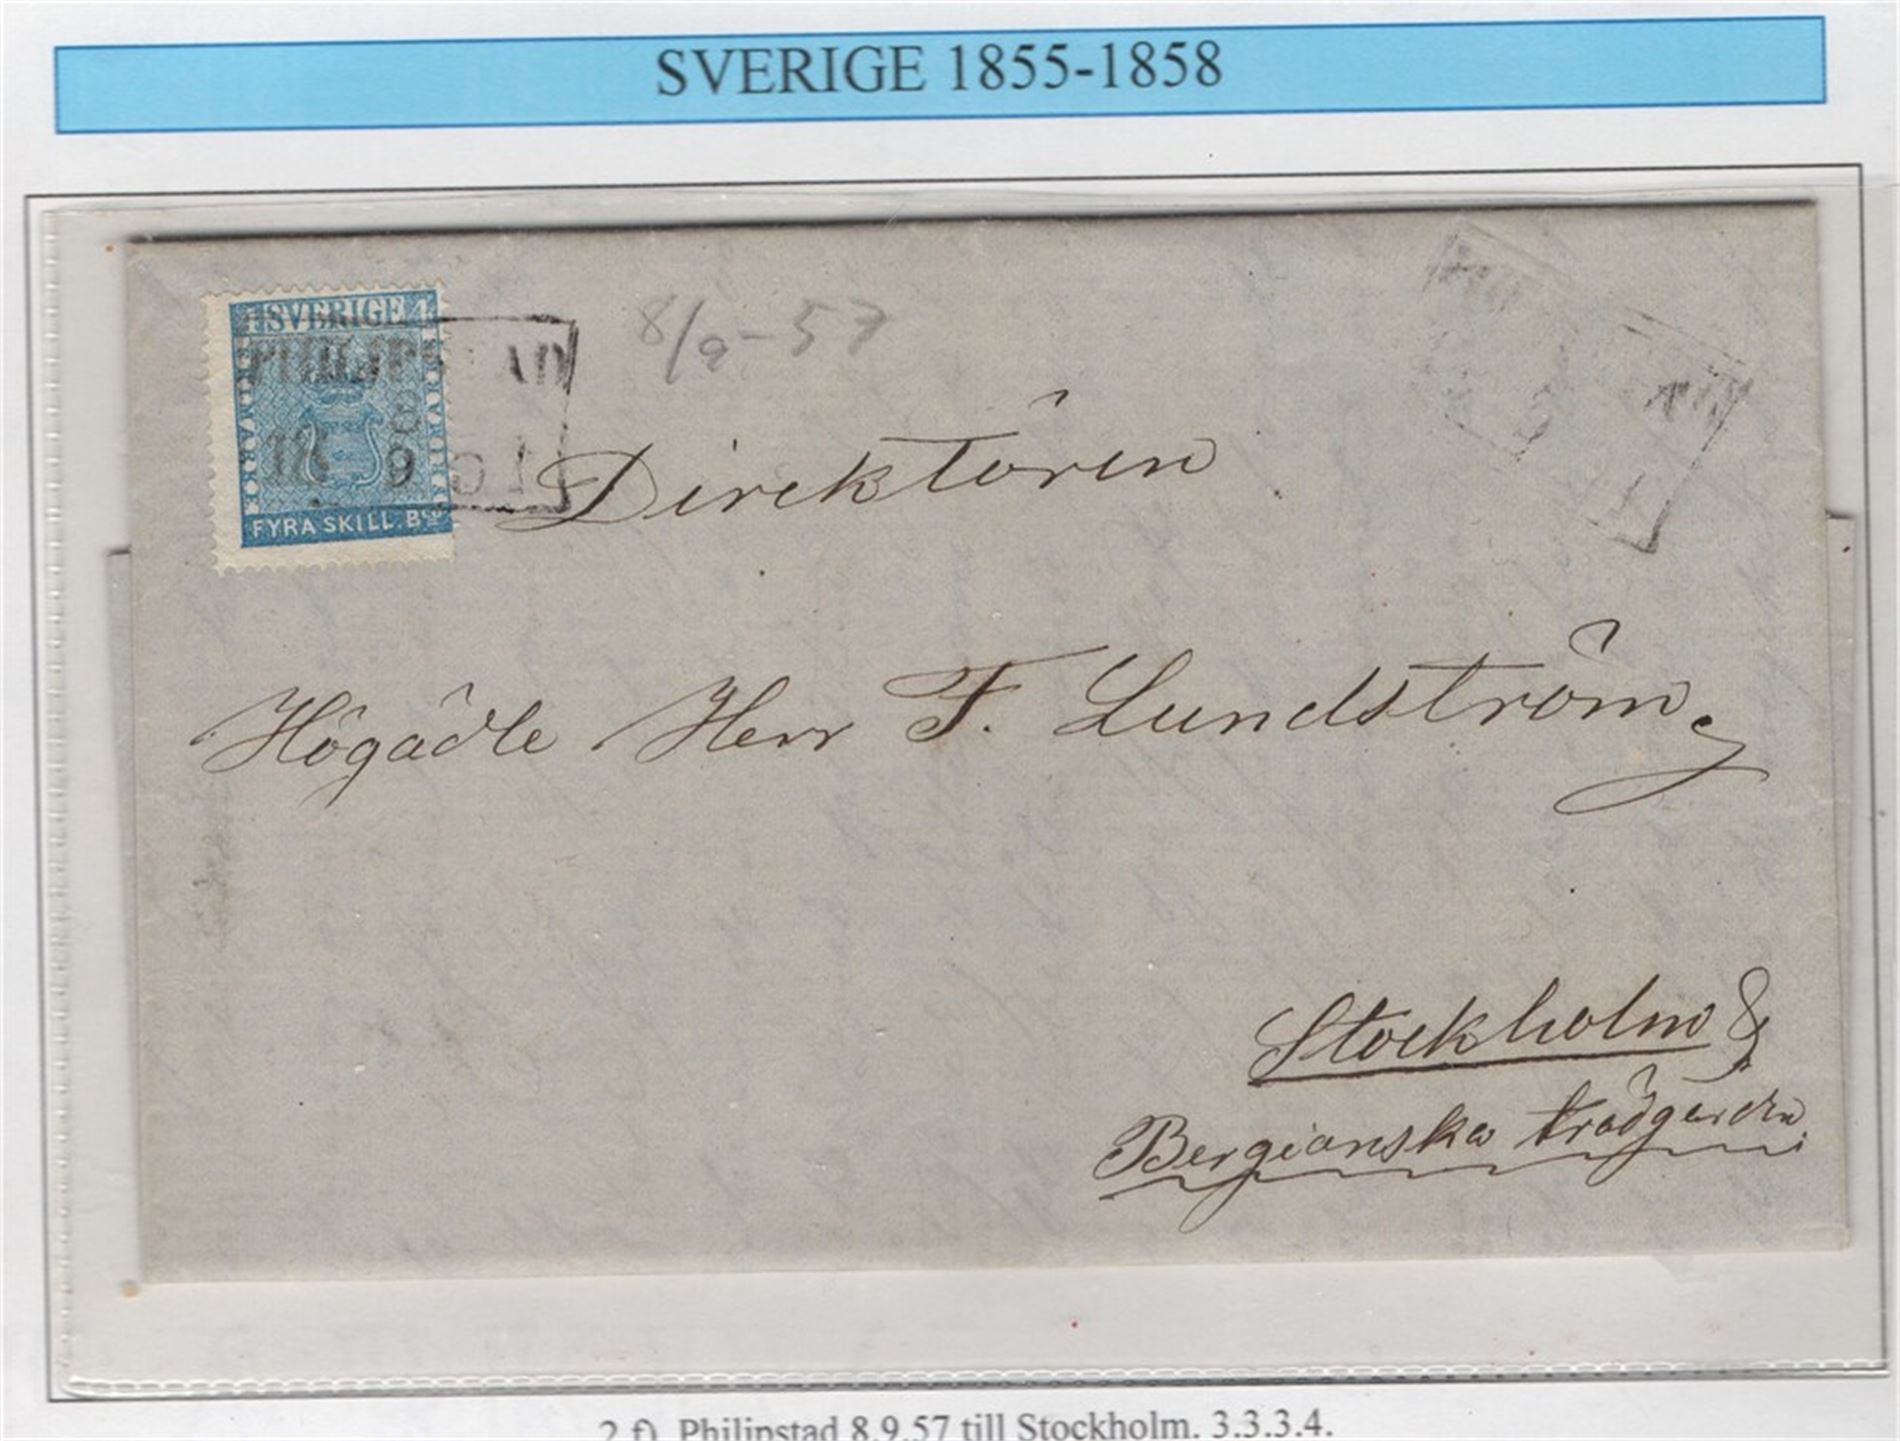 SVERIGE 1855-1858
SVERIGE 4
FRIMÄRKE
FYRA SKILL. Bco
PHILIPSTAD
8
18 9 57
8/9-57
Direktören
Högädle Herr F. Lundström
Stockholm &
Bergianska trädgården
2 f). Philipstad 8.9.57 till Stockholm. 3.3.3.4.